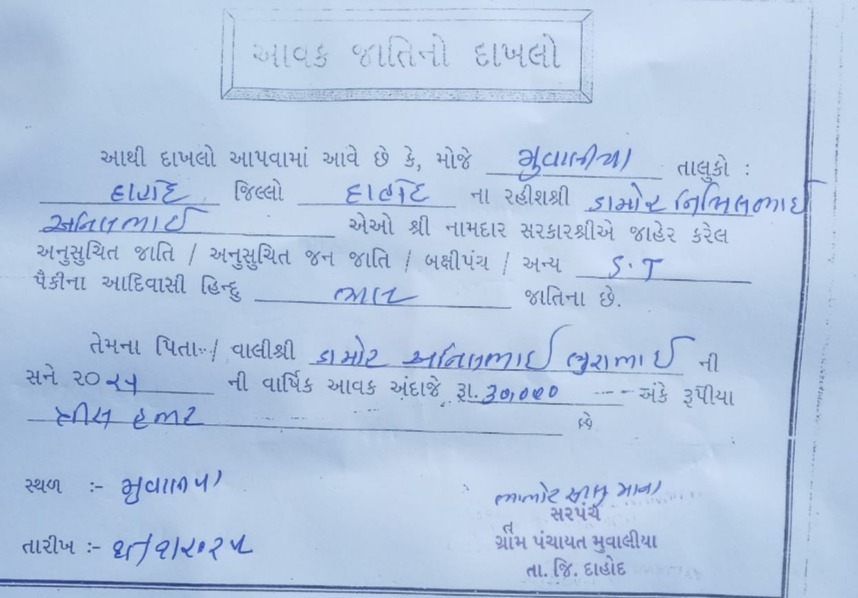 આવક જાતિનો દાખલો
આથી દાખલો આપવામાં આવે છે કે, મોજે મુવાલીયા તાલુકો :
દાહોદ જિલ્લો દાહોદ ના રહીશશ્રી ડામોર નિખિલભાઈ
અનિલભાઈ એઓ શ્રી નામદાર સરકારશ્રીએ જાહેર કરેલ
અનુસુચિત જાતિ / અનુસુચિત જન જાતિ / બક્ષીપંચ / અન્ય S.T
પૈકીના આદિવાસી હિન્દુ જાતિના છે.
તેમના પિતા / વાલીશ્રી ડામોર અનિલભાઈ ભુરાભાઈ ની
સને ૨૦૨૫ ની વાર્ષિક આવક અંદાજે રૂા. ૩૦,૦૦૦ --- અંકે રૂપીયા
ત્રીસ હજાર છે
સ્થળ :- મુવાલીયા
સરપંચ
ગ્રામ પંચાયત મુવાલીયા
તા. જિ. દાહોદ
તારીખ :-